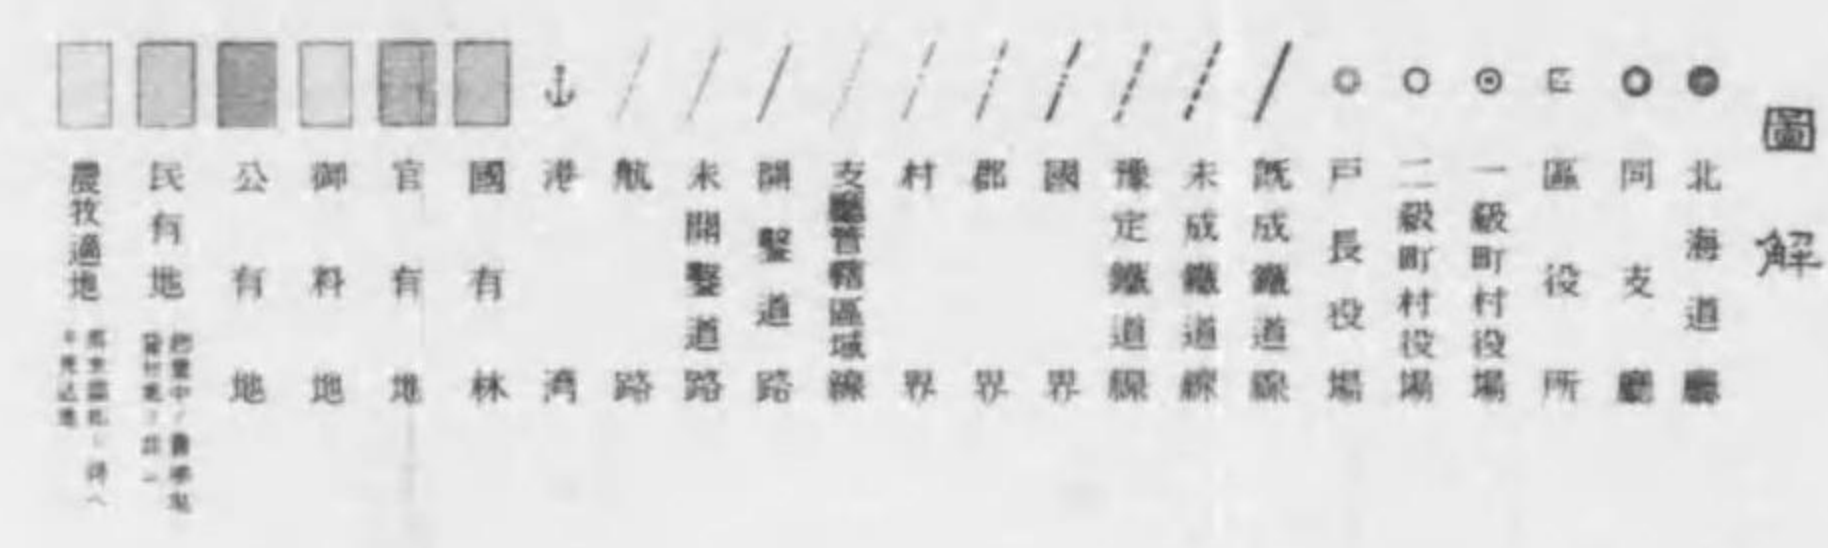 圖解
北海道廳
同支廳
區役所
一級町村役場
二級町村役場
戸長役場
既成鐵道線
未成鐵道線
豫定鐵道線
國界
郡界
村界
支廳管轄區域線
開鑿道路
未開鑿道路
航路
港湾
國有林
官有地
御料地
公有地
民有地
農牧適地